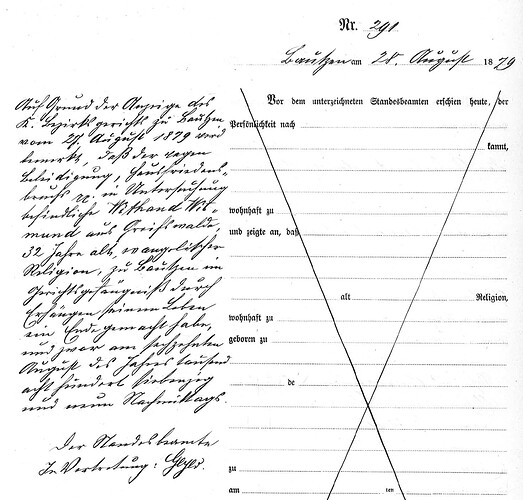 Nr. 291
Bautzen am 28. August 1879
Auf Grund der Anzeige des
K. Bezirksgerichts zu Bautzen
vom 27. August 1879 wird
bemerkt, daß der wegen
Beleidigung, Hausfriedens-
bruchs p. in Untersuchung
befindliche
aus Greifswalde,
32 Jahre alt, evangelischer
Religion, zu Bautzen im
Gerichtsgefängniß durch
Erhängen seinem Leben
ein Ende gemacht habe,
und zwar am sechzehnten
August des Jahres tausend
acht hundert siebenzig
und neun Nachmittags.
Der Standesbeamte
In Vertretung:
Vor dem unterzeichneten Standesbeamten erschien heute, der
Persönlichkeit nach
kannt,
wohnhaft zu
und zeigte an, daß
alt Religion,
wohnhaft zu
geboren zu
de
zu
am ten